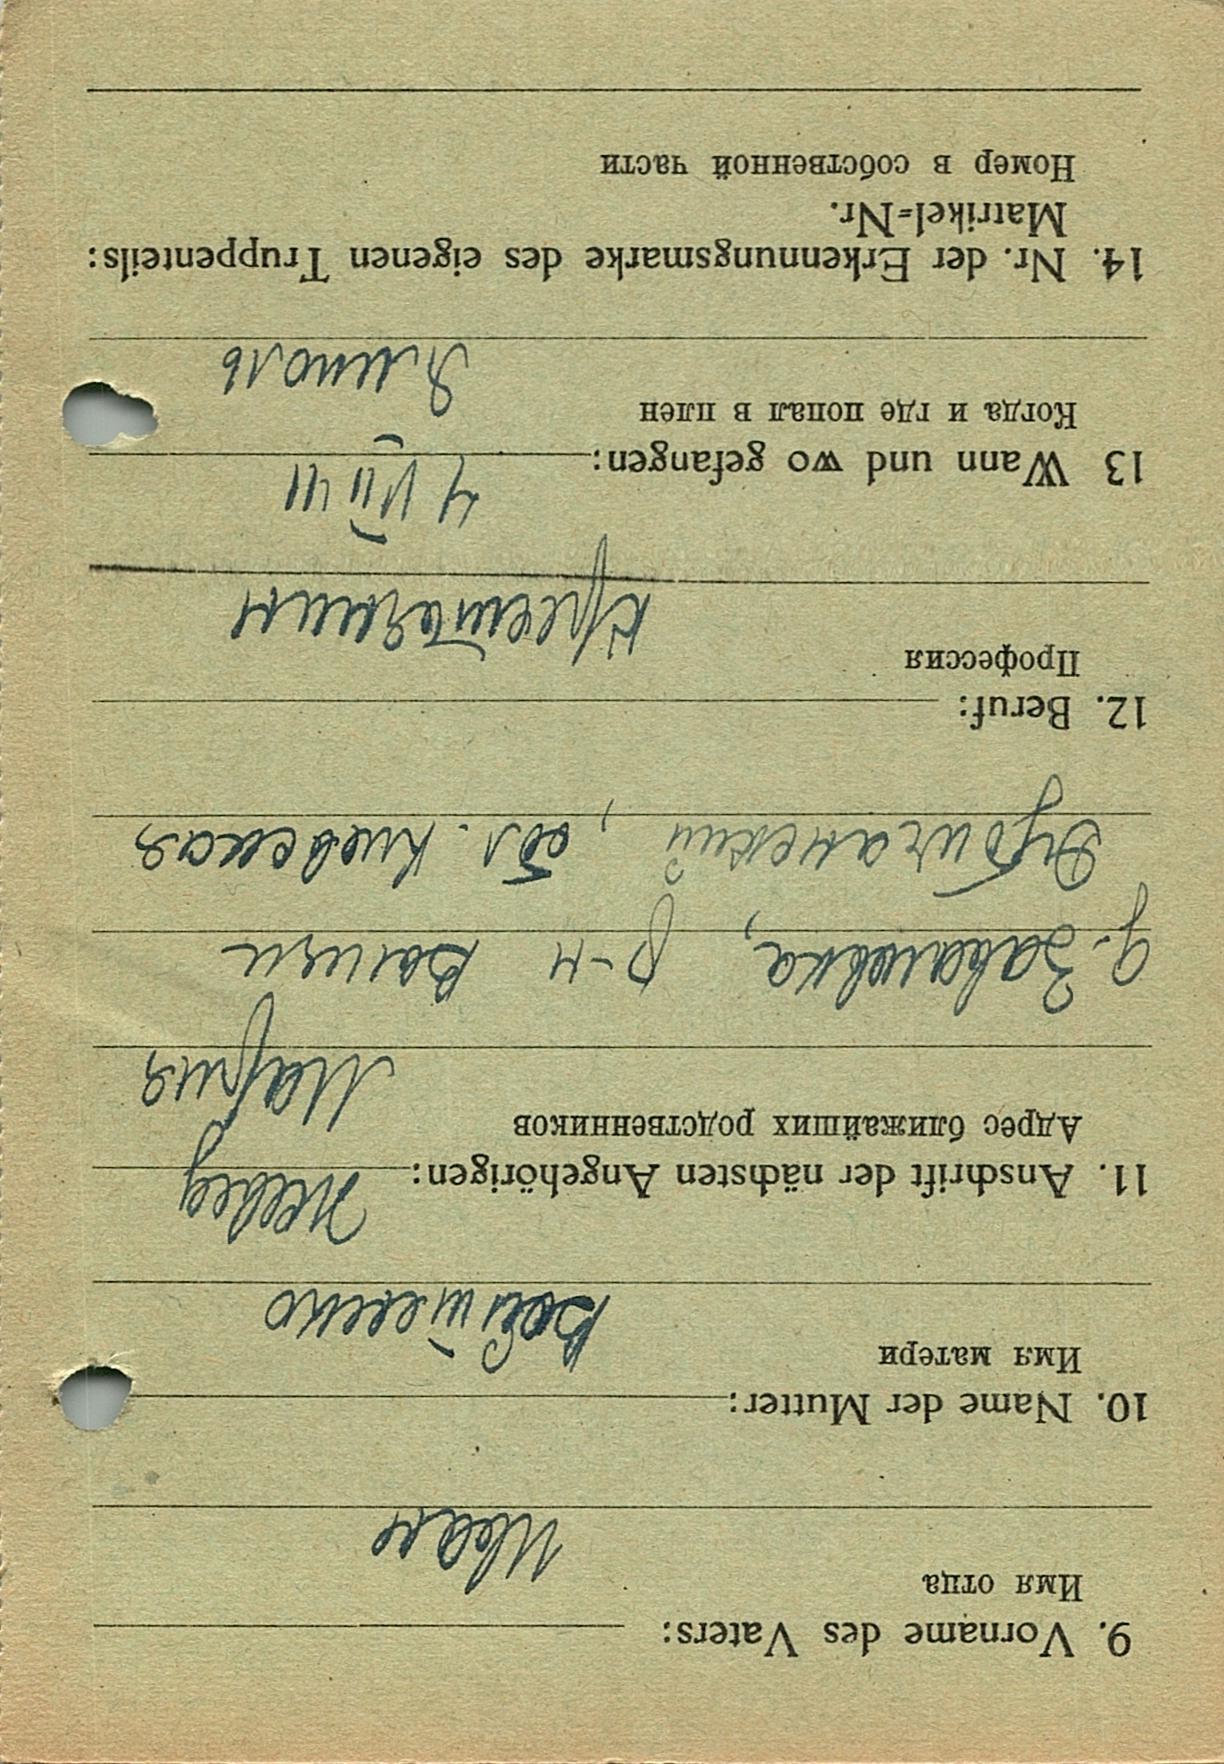 9. Vorname des Vaters:
Имя отца
Иван
10. Name der Mutter:
Имя матери
Войтенко
11. Anschrift der nächsten Angehörigen:
Адрес ближайших родственников
Мария
д. Заваловка, р-н
обл. Киевская
12. Beruf:
Профессия
крестьянин
13 Wann und wo gefangen:
4 VII 41
Когда и где попал в плен
Ямполь
14. Nr. der Erkennungsmarke des eigenen Truppenteils:
Matrikel-Nr.
Номер в собственной части